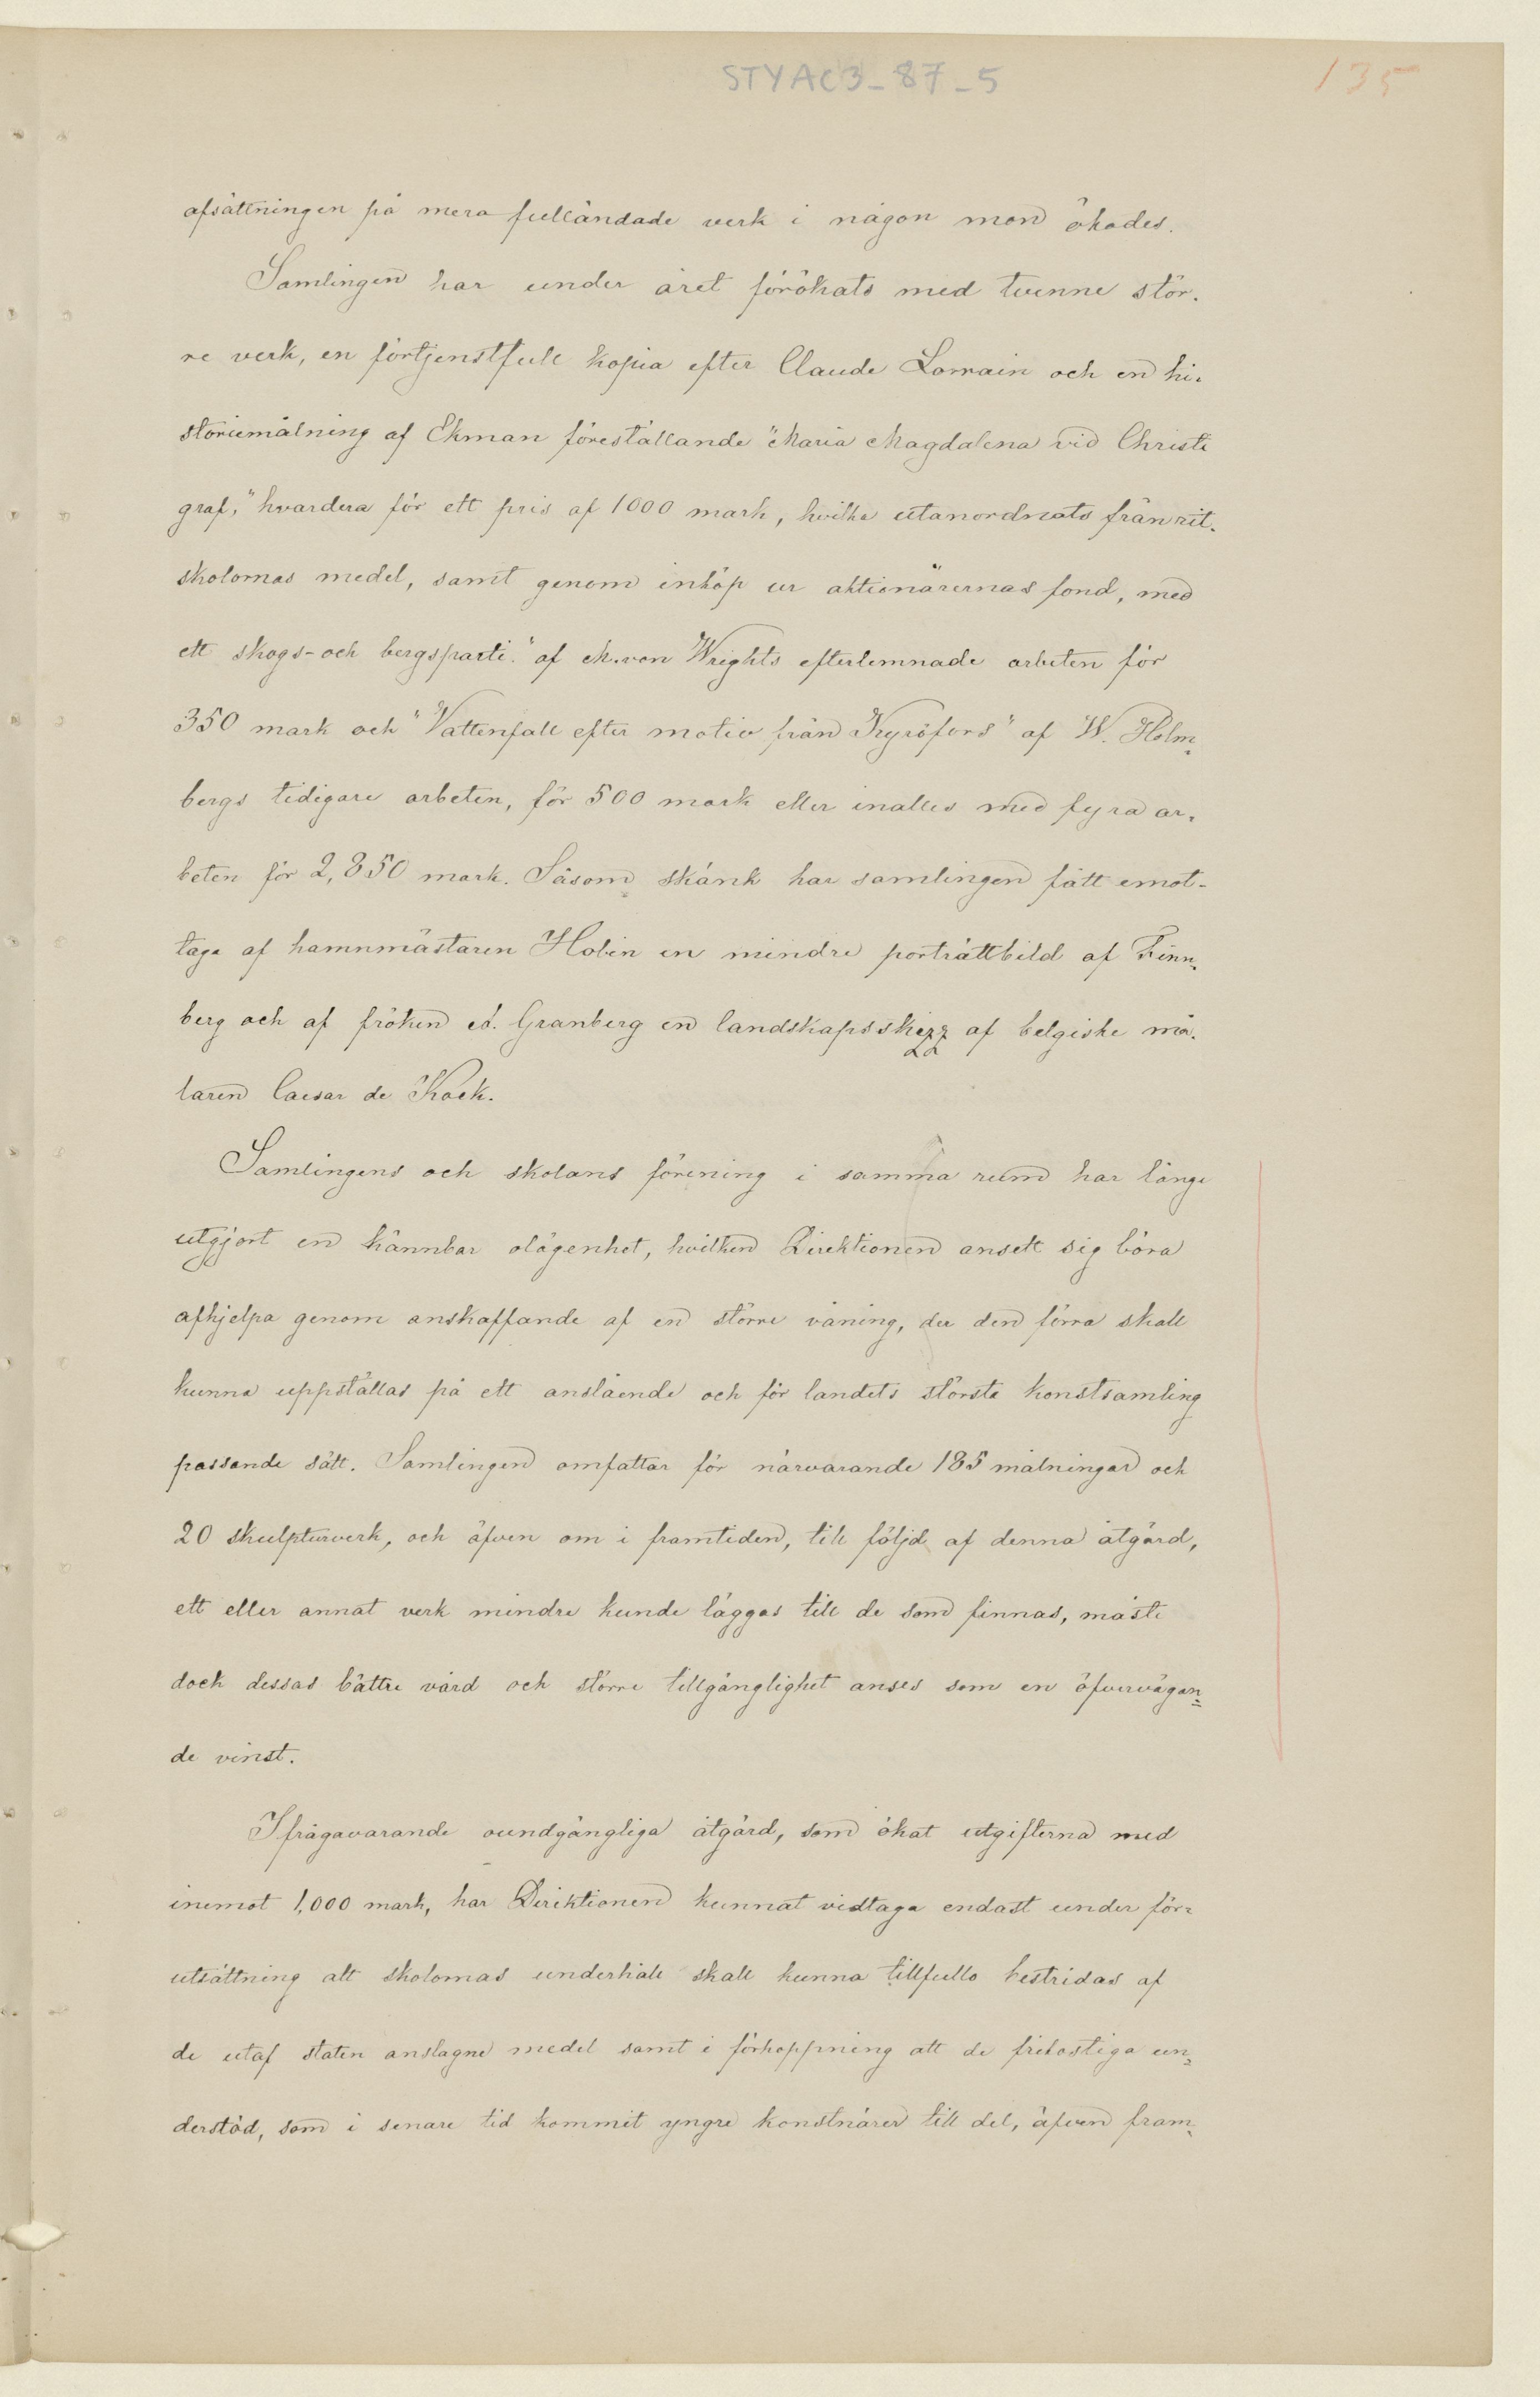 STYAC3_87_5
135
afsättningen på mera fulländade verk i någon mon ökades.
Samlingen har under året förökats med tvenne stör-
re verk, en förtjenstfull kopia efter Claude Lorrain och en hi-
storiemålning af Ekman föreställande "Maria Magdalena vid Christi
graf," hvardera för ett pris af 1000 mark, hvilka utanordnats från rit-
skolornas medel, samt genom inköp ur aktionärernas fond, med
ett skogs- och bergsparti" af M. von Wrights efterlemnade arbeten för
350 mark och "Vattenfall efter motiv från Kyröfors" af W. Holm-
bergs tidigare arbeten, för 500 mark eller inalles med fyra ar-
beten för 2,850 mark. Såsom skänk har samlingen fått emot-
taga af hamnmästaren Hobin en mindre porträttbild af Finn-
berg och af fröken Granberg en landskapsskizz af belgiske må-
laren Caesar de Kock.
Samlingens och skolans förening i samma rum har länge
utgjort en kännbar olägenhet, hvilken Direktionen ansett sig böra
afhjelpa genom anskaffande af en större våning, der den förra skall
kunna uppställas på ett anslående och för landets största konstsamling
passande sätt. Samlingen omfattar för närvarande 185 målningar och
20 skulpturverk, och äfven om i framtiden, till följd af denna åtgärd,
ett eller annat verk mindre kunde läggas till de som finnas, måste
dock dessas bättre vård och större tillgänglighet anses som en öfvervägan-
de vinst.
Ifrågavarande oundgängliga åtgärd, som ökat utgifterna med
inemot 1,000 mark, har Direktionen kunnat vidtaga endast under för-
utsättning att skolornas underhåll skall kunna tillfullo bestridas af
de utaf staten anslagne medel samt i förhoppning att de frikostiga un-
derstöd, som i senare tid kommit yngre konstnärer till del, äfven fram-